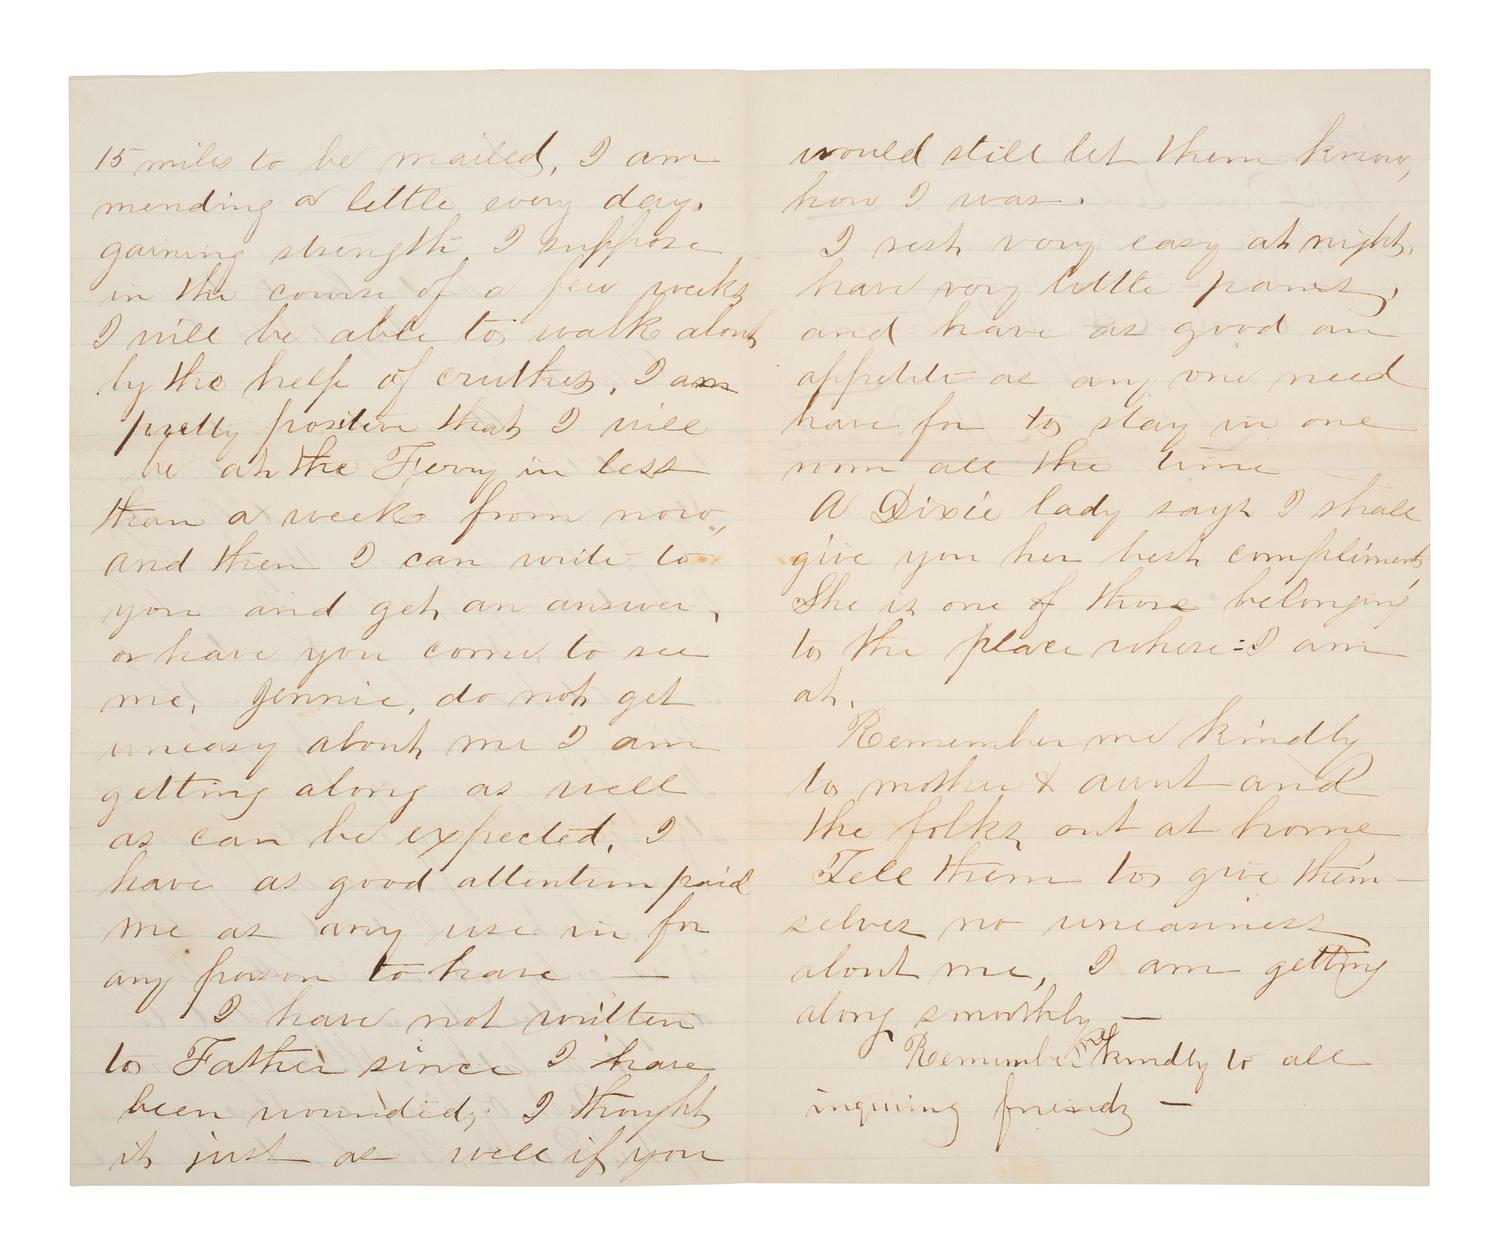 15 miles to be mailed, I am
mending a little every day.
gaining strength I suppose
in the course of a few weeks
I will be able to walk about
by the help of cruthes, I am
pretty positive that I will
be at the Ferry in less
than a week from now,
and then I can write to
you and get an answer,
or have you come to see
me, Jennie, do not get
uneasy about me I am
getting along as well
as can be expected, I
have as good attention paid
me as any use in for
any person to have —
I have not written
to Father since I have
been wounded; I thought
it just as well if you
would still let them know,
how I was.
I rest very easy at night,
have very little pains,
and have as good an
appetite as any one need
have for to stay in one
room all the time
A Dixie lady says I shall
give you her best compliments
She is one of those belonging
to the place where I am
at.
Remember me kindly
to mother & aunt and
the folks out at home
Tell them to give them-
selves no uneasiness
about me, I am getting
along smoothly —
Remember me kindly to all
inquiring friends —